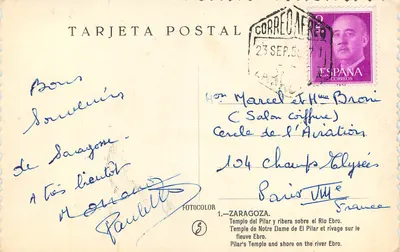 TARJETA POSTAL
CORREO AEREO
23 SEP. 5
ESPAÑA
CORREOS
Bons
Souvenirs
de Saragosse
A très bientôt
Paulette
Mon Marcel et Mme Broni
(Salon Coiffure)
Cercle de l'Aviation
104 Champs Elysées
Paris VIIIe
France
FOTOCOLOR
5
1.-ZARAGOZA.
Templo del Pilar y ribera sobre el Rio Ebro.
Temple de Notre Dame de El Pilar et rivage sur le
fleuve Ebro.
Pilar's Temple and shore on the river Ebro.